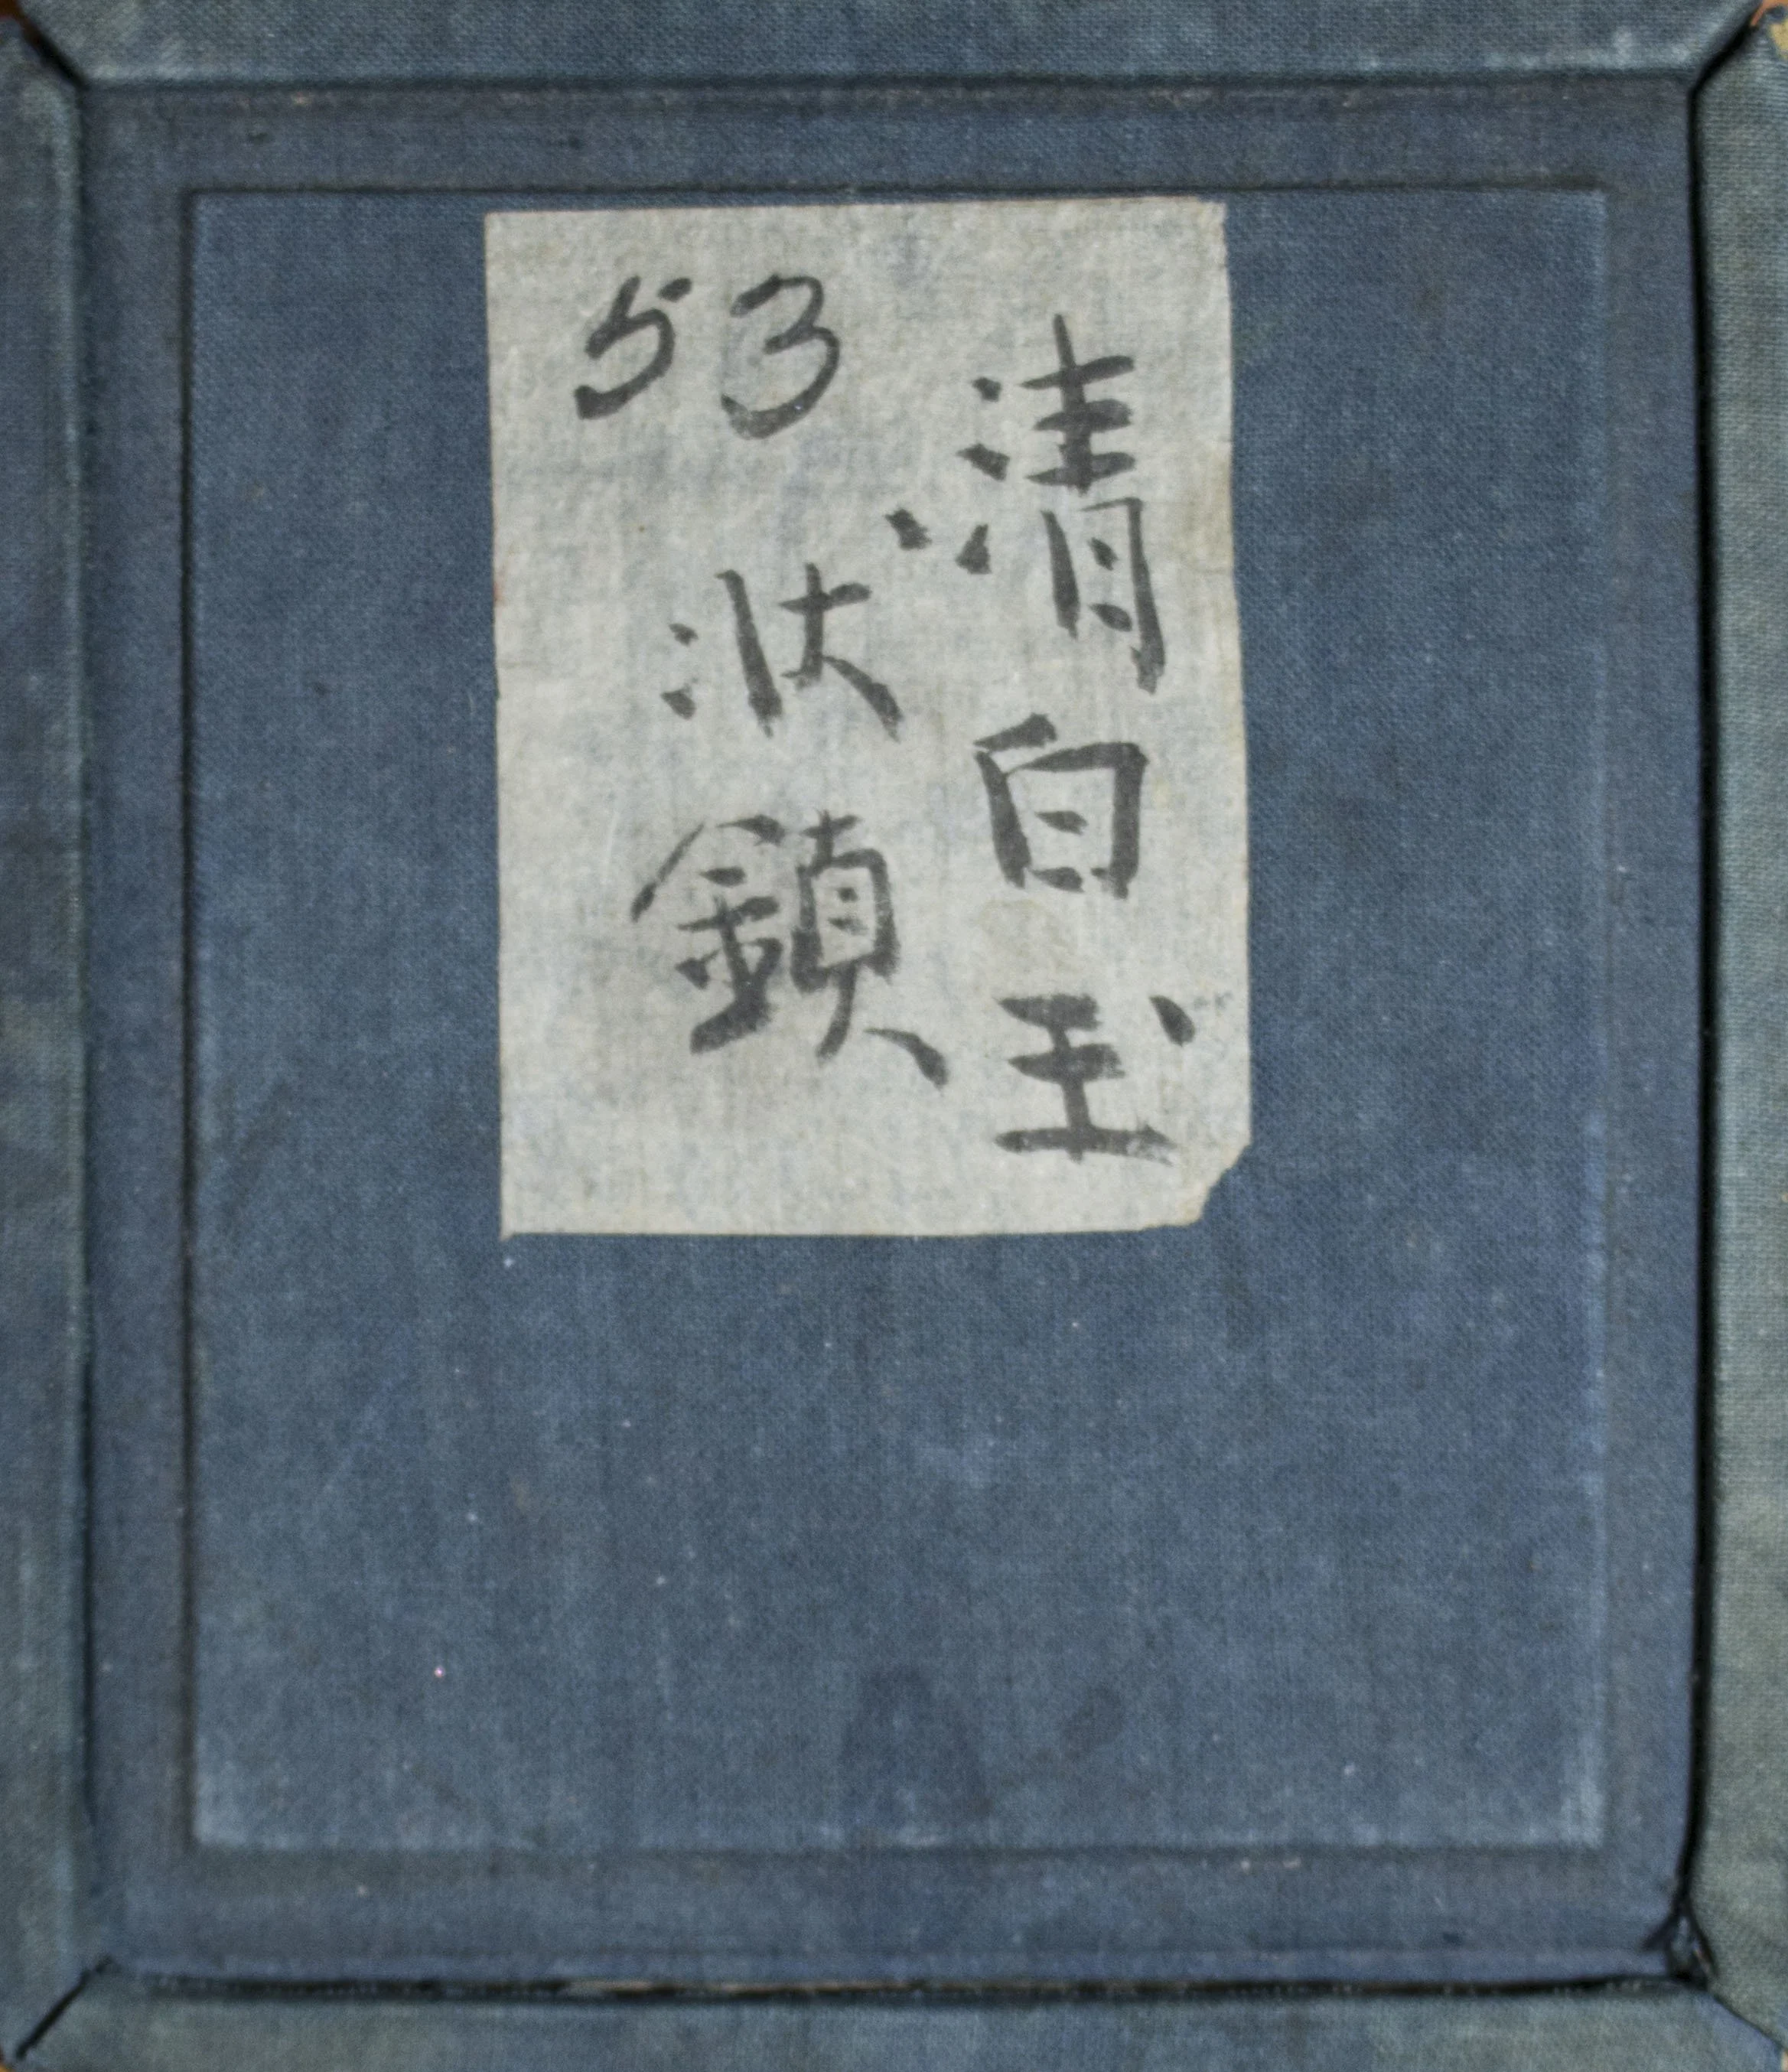 清白玉
53
状鎖